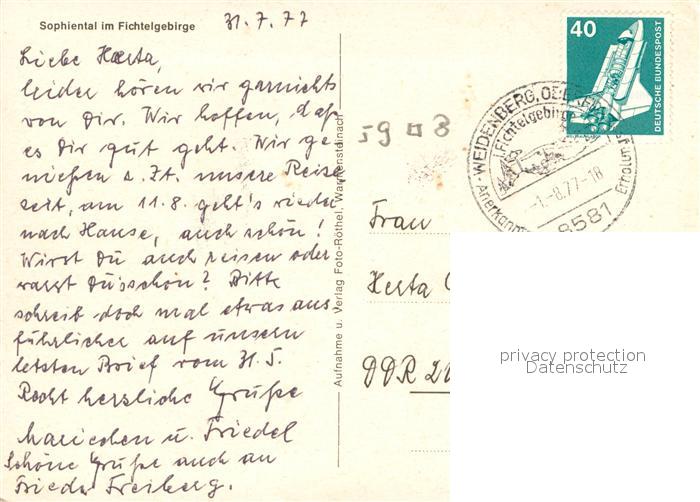 Sophiental im Fichtelgebirge
31.7.77
Liebe Herta,
leider hören wir garnichts
von Dir. Wir hoffen, daß
es Dir gut geht. Wir ge-
nießen z. Zt. unsere Reise
zeit, am 11.8. geht's wieder
nach Hause, auch schön!
Wirst Du auch reisen oder
warst Du schon? Bitte
schreib doch mal etwas aus-
führlicher auf unsern
letzten Brief vom 31.5.
Recht herzliche Grüße
Mariechen u. Friedel
Schöne Grüße auch an
Frieda Freiberg.
Aufnahme u. Verlag Foto-Röthel, Warmensteinach
59 8
40
DEUTSCHE BUNDESPOST
WEIDENBERG, OBERFR
Fichtelgebirge
-1.-8.77-18
8581
Anerkann
Erholum
Frau
Herta
DDR 21
privacy protection
Datenschutz